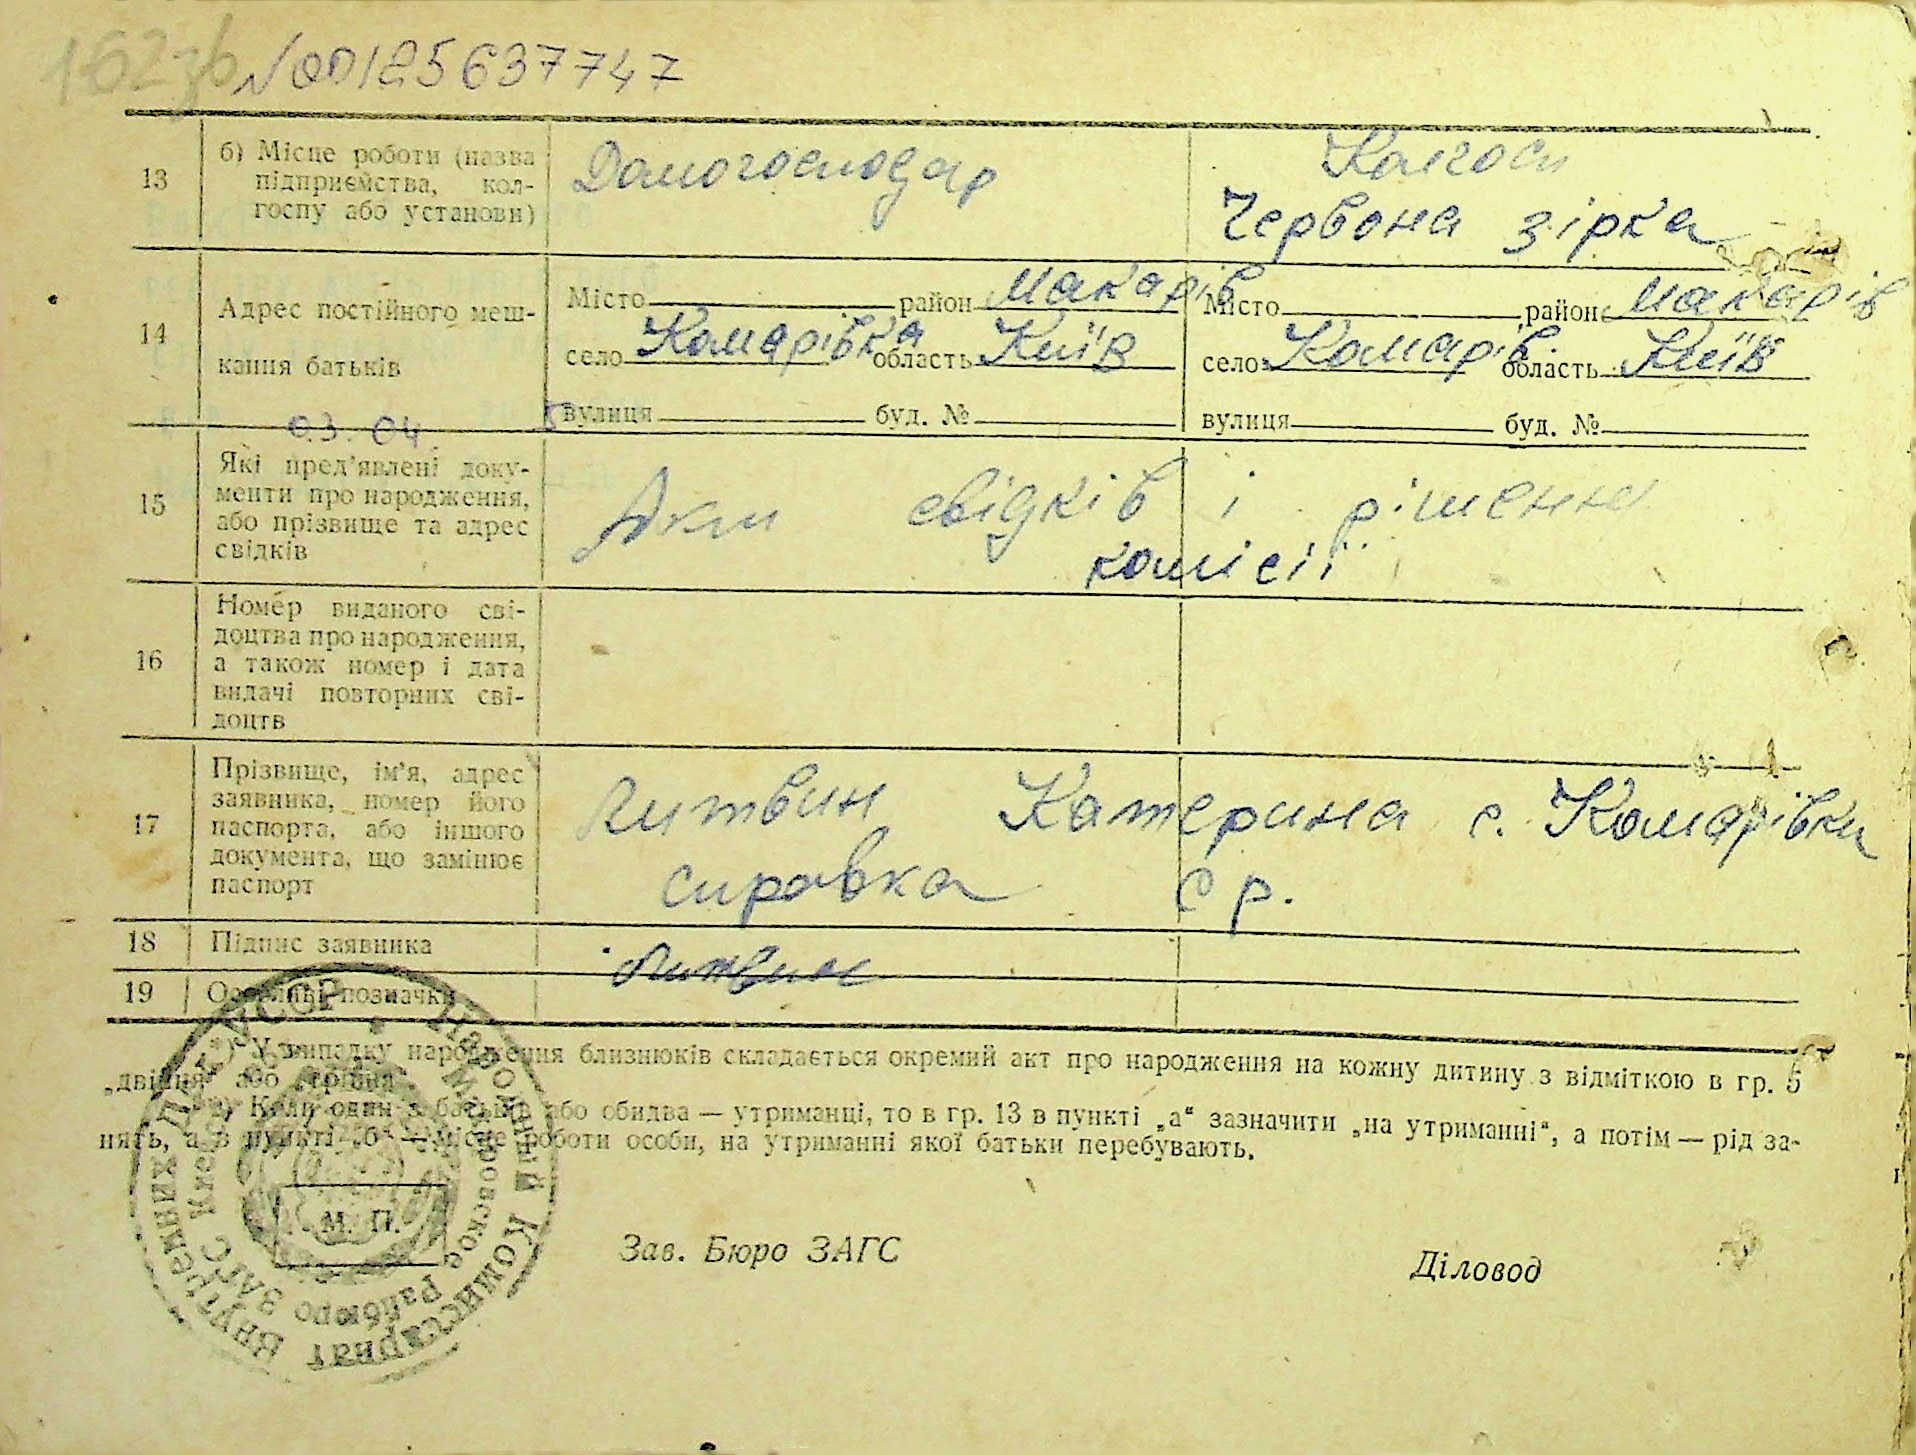 162зв N00125637747
13
б) Місце роботи (назва
підприємства, кол-
госпу або установи)
Домогосподар
Колгосп
Червона зірка
14
Адрес постійного меш-
кання батьків
Місто район Макарів
село Комарівка область Київ
вулиця буд. №
Місто район Макарів
село Комарів. область Київ
вулиця буд. №
03. 04
15
Які пред'явлені доку-
менти про народження,
або прізвище та адрес
свідків
Акт свідків і рішення
комісії
16
Номер виданого сві-
доцтва про народження,
а також номер і дата
видачі повторних сві-
доцтв
17
Прізвище, ім'я, адрес
заявника, номер його
паспорта, або іншого
документа, що замінює
паспорт
Литвин Катерина с. Комарівка
справка с р.
18
Підпис заявника
Литвин
19
Особливі позначки
*) У випадку народження близнюків складається окремий акт про народження на кожну дитину з відміткою в гр. 5
„двійня“ або „трійня“
2) Коли один з батьків або обидва — утриманці, то в гр. 13 в пункті „а“ зазначити „на утриманні“, а потім — рід за-
нять, а в пункті „б“ — місце роботи особи, на утриманні якої батьки перебувають.
М. П.
Зав. Бюро ЗАГС
Діловод
Народный Комиссариат Внутренних Дел УССР
Макаровское Райбюро ЗАГС